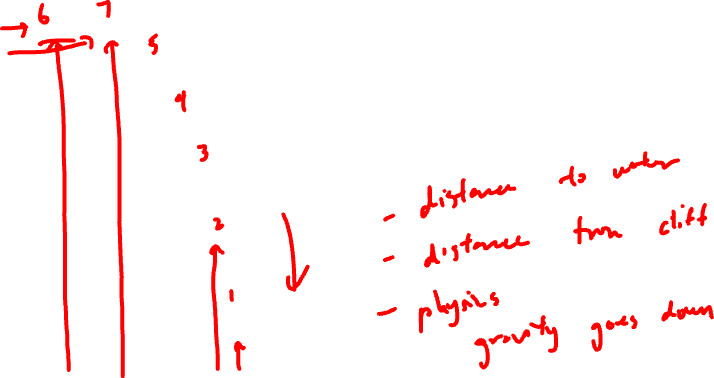 6 7
5
4
3
2
1
- distance to water
- distance from cliff
- physics
gravity goes down